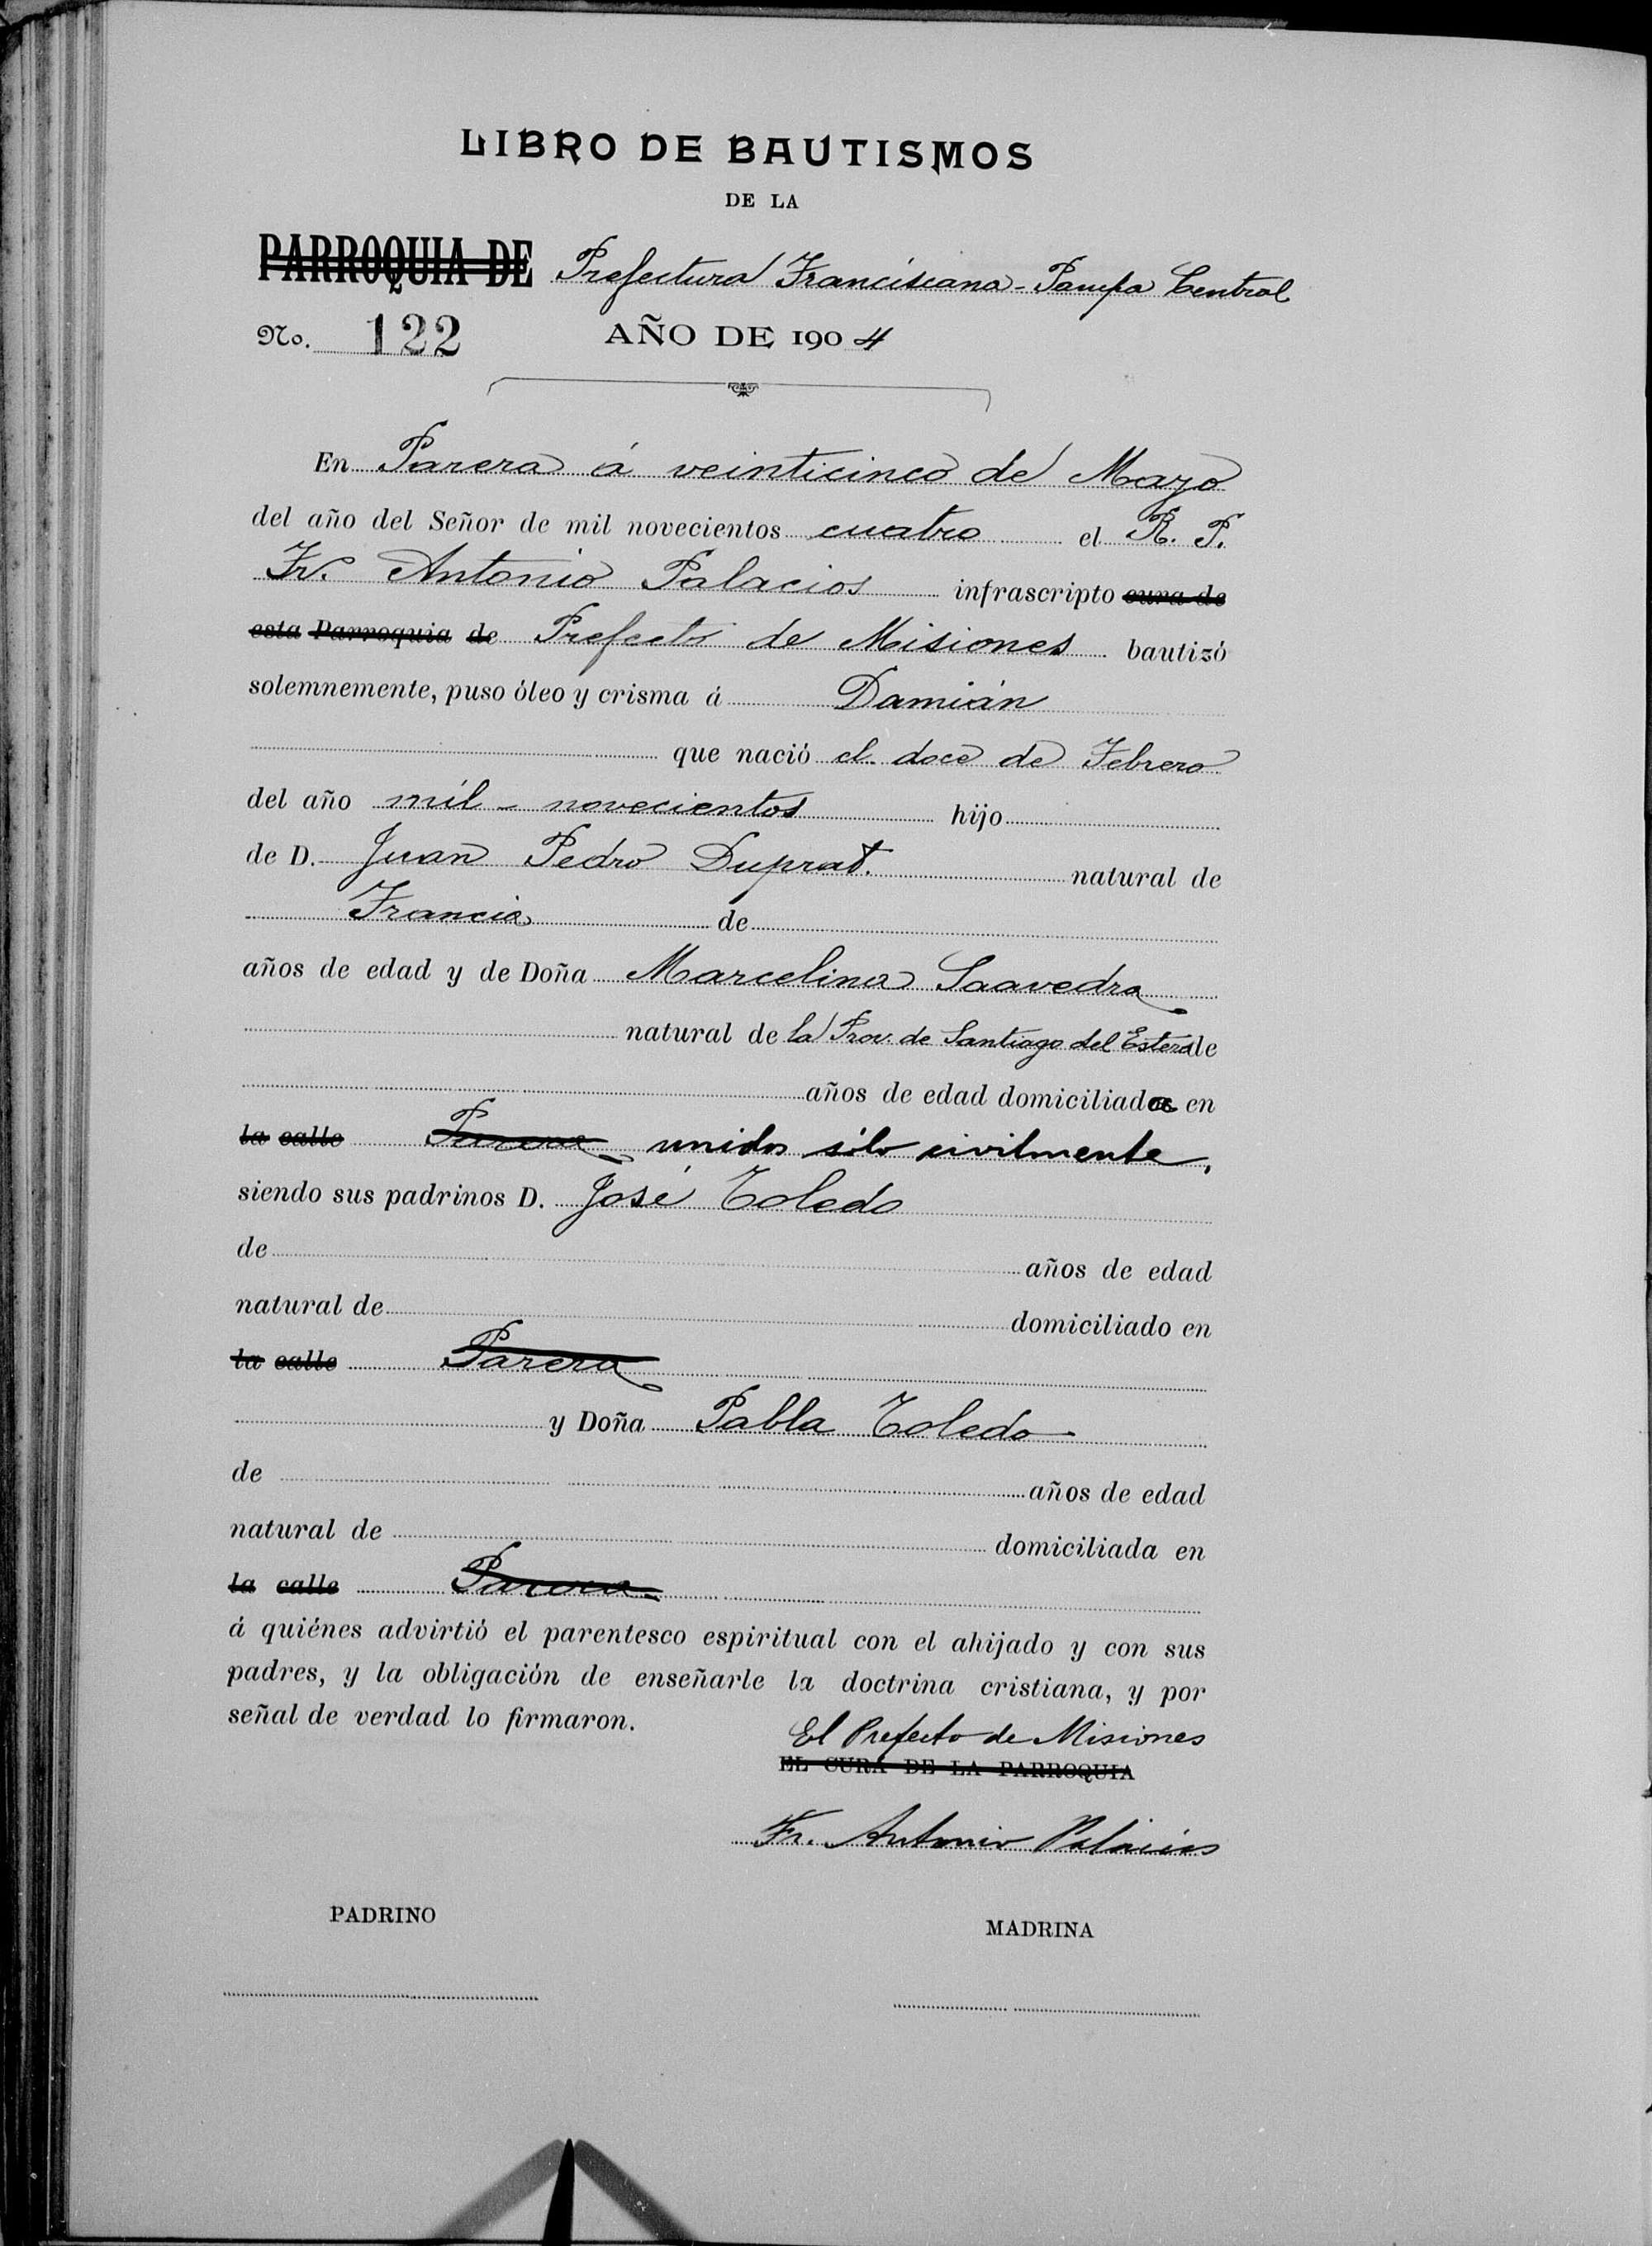 LIBRO DE BAUTISMOS
DE LA
PARROQUIA DE Prefectura Franciscana - Pampa Central
No. 122 AÑO DE 1904
En Parera á veinticinco de Mayo
del año del Señor de mil novecientos cuatro el R. P.
Fr. Antonio Palacios infrascripto cura de
esta Parroquia de Prefecto de Misiones bautizó
solemnemente, puso óleo y crisma á Damián
que nació el doce de Febrero
del año mil - novecientos hijo
de D. Juan Pedro Duprat. natural de
Francia de
años de edad y de Doña Marcelina Saavedra
natural de la Prov. de Santiago del Estero de
años de edad domiciliados en
la calle Parera unidos sólo civilmente,
siendo sus padrinos D. José Toledo
de años de edad
natural de domiciliado en
la calle Parera
y Doña Pabla Toledo
de años de edad
natural de domiciliada en
la calle Parera
á quiénes advirtió el parentesco espiritual con el ahijado y con sus
padres, y la obligación de enseñarle la doctrina cristiana, y por
señal de verdad lo firmaron.
El Prefecto de Misiones
EL CURA DE LA PARROQUIA
Fr. Antonio Palacios
PADRINO MADRINA